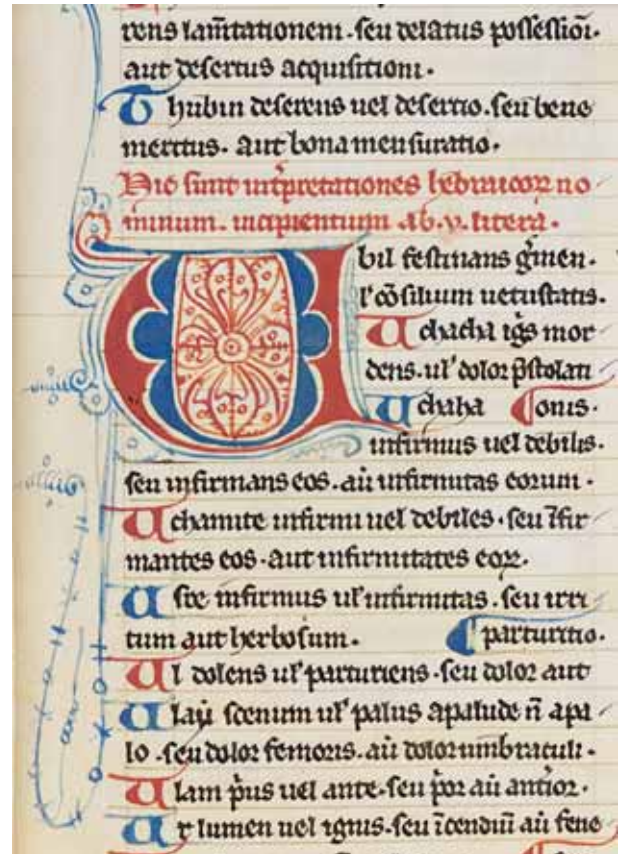 rens lam̃tationem · seu delatus possessiõi ·
aut desertus acquisitioni ·
Thubin deserens uel desertio · seu bene
meritus · aut bona mensuratio ·
Hic sunt int̾pretationes hebraicoꝝ no
minum · incipientium ab · v · litera ·
Ubil festinans g̾men ·
l' cõsilium uetustatis ·
Uchacha igs mor
dens · ul' dolor p̾stolati
Uchaha ¶onis ·
infirmus uel debilis ·
seu infirmans eos · aũ infirmitas eorum ·
Uchamite infirmi uel debiles · seu ĩfir
mantes eos · aut infirmitates eoꝝ ·
Uste infirmus ul' infirmitas · seu irri
tum aut herbosum · ¶ parturitio ·
Ul dolens ul' parturiens · seu dolor aut
Ulaũ scenum ul' palus apalude ñ apa
lo · seu dolor femoris · aũ dolor umbraculi ·
Ulam p̾us uel ante · seu p̾or aũ antior ·
Ur lumen uel ignis · seu ĩcendiũ aũ fene